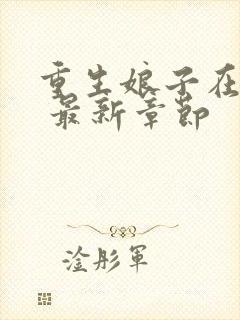 重生娘子在
最新章節
淦彤軍